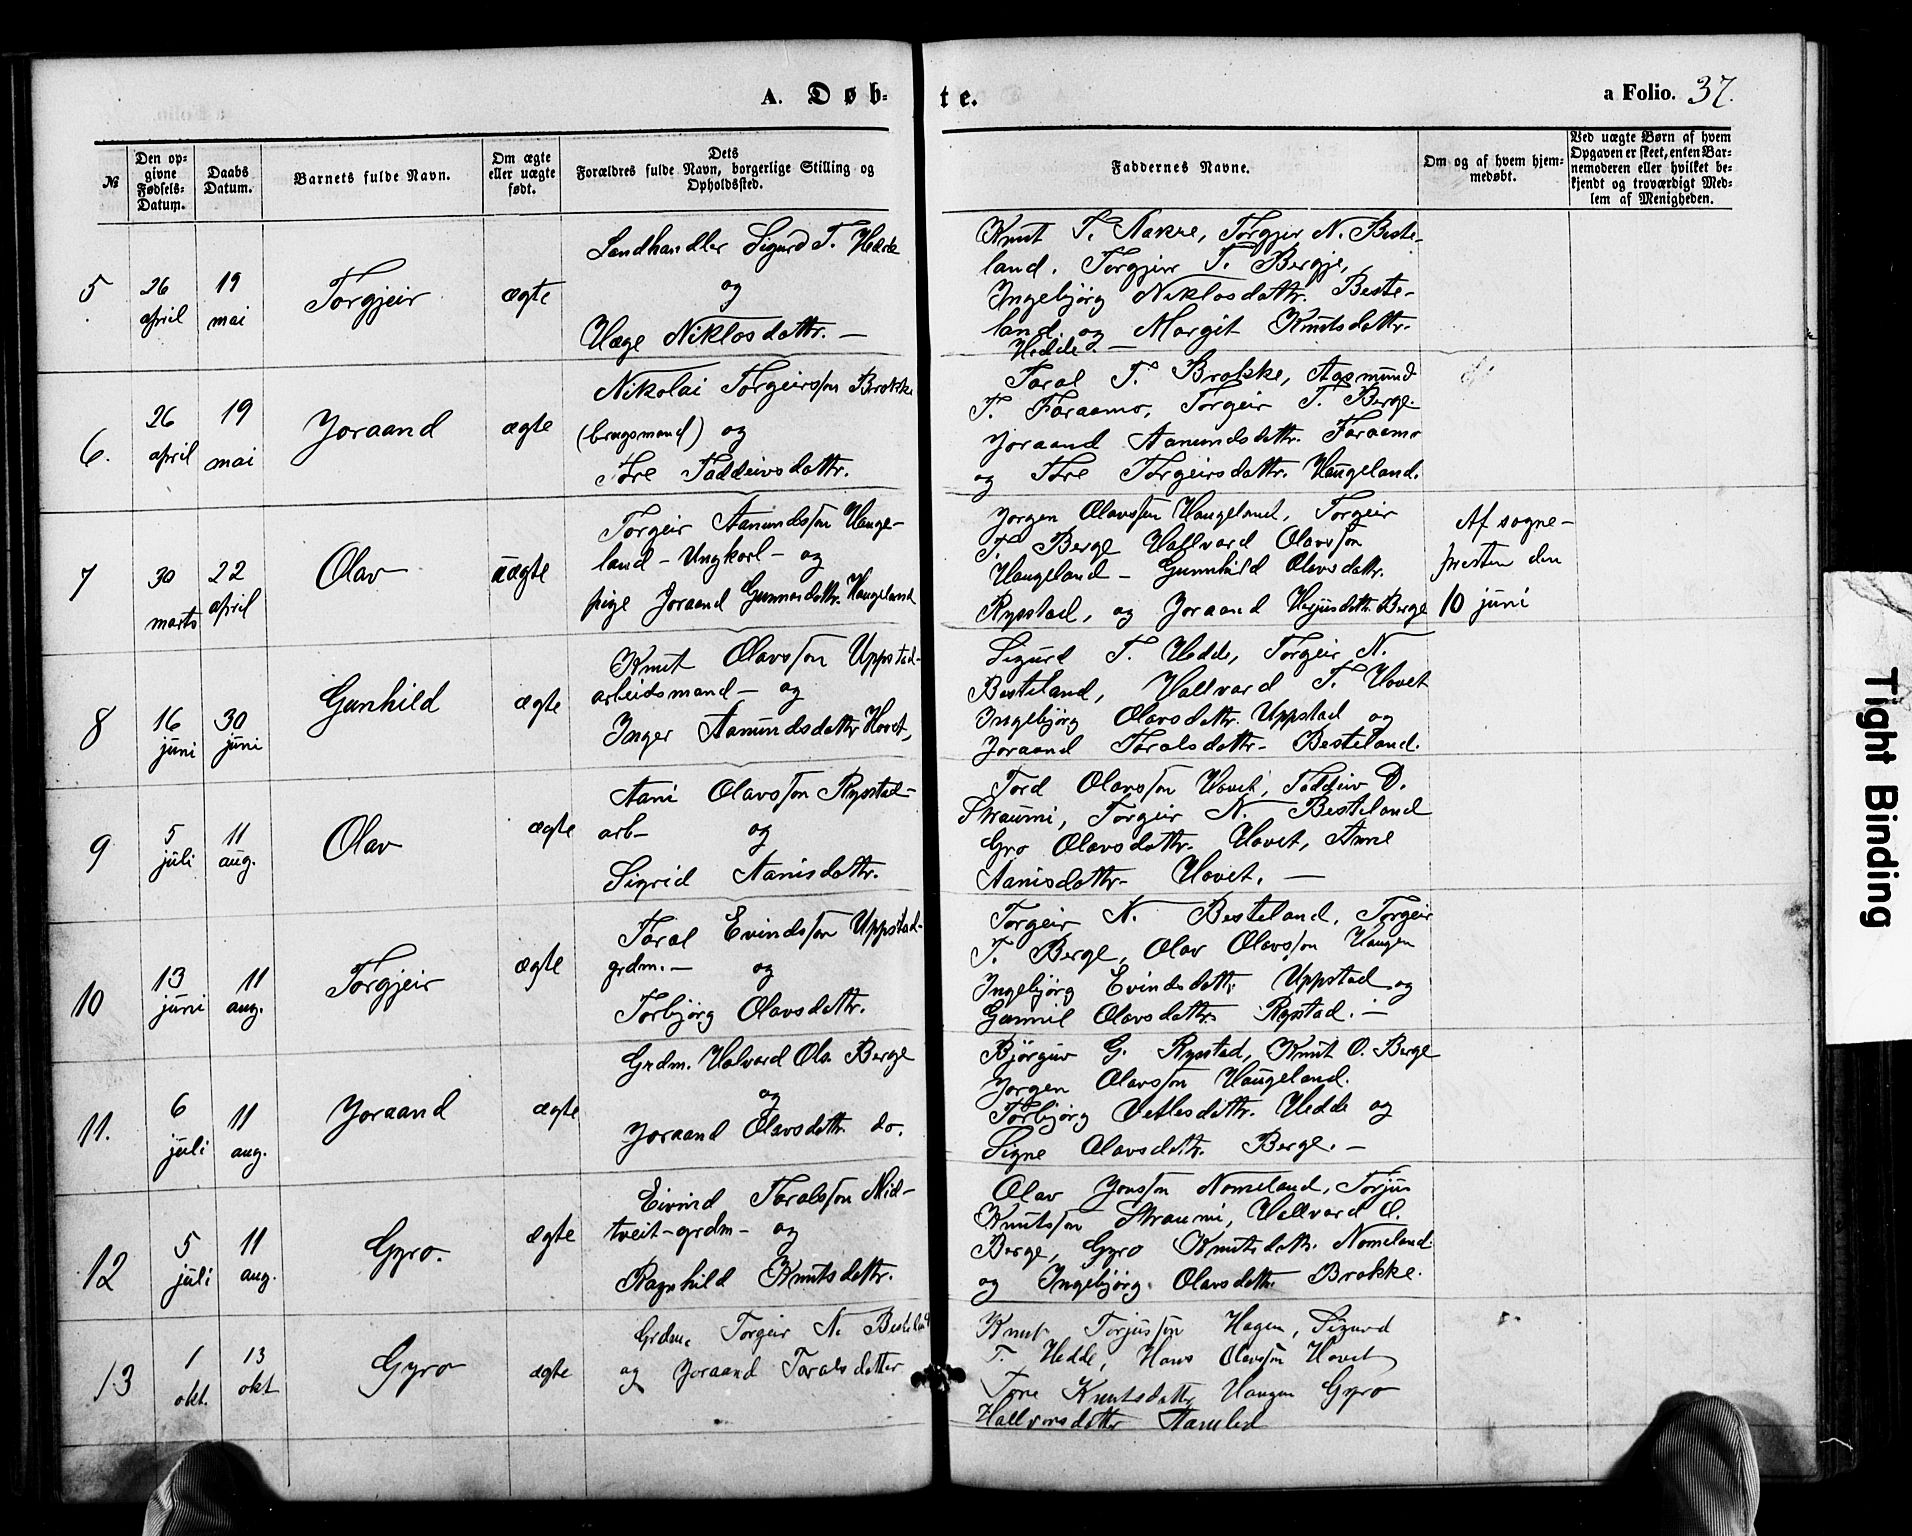 A. Døb- te.
a Folio. 37.
№
Den op-
givne
Fødsels-
Datum.
Daabs
Datum.
Barnets fulde Navn.
Om ægte
eller uægte
født.
Dets
Forældres fulde Navn, borgerlige Stilling og
Opholdssted.
Faddernes Navne.
Om og af hvem hjem-
medøbt.
Ved uægte Børn af hvem
Opgaven er skeet, enten Bar-
nemoderen eller hvilket be-
kjendt og troværdigt Med-
lem af Menigheden.
5
26
april
19
mai
Torgjeir
ægte
Landhandler Sigurd T.
og
Hæge Niklosdattr. —
Knut T. Torgjeir N. Beste-
land. Torgjeir T. Bergje,
Ingebjörg Niklosdattr. Beste-
land og Margit Knutsdattr.
Hedde. —
6.
26
april
19
mai
Joraand
ægte
Nikolai Torgeirsson Brokke
(brugsmand) og
Tore Taddeivsdattr.
Taral T. Brokke, Aasmund
T. Faraamo, Torgeir T. Berge.
Joraand Aanundsdattr. Faraamo
og Tore Torgeirsdattr. Haugeland.
7
30
marts
22
april
Olav
uægte
Torgeir Aanundsson Hauge-
land – Ungkarl – og
pige Joraand Gunnarsdattr. Haugeland
Jorgen Olavsson Haugeland, Torgeir
T. Berge Hallvard Olavsson
Haugeland – Gunnhild Olavsdattr.
Rysstad, og Joraand Herjusdattr. Berge
Af sogne-
presten den
10 juni
8
16
juni
30
juni
Gunhild
ægte
Knut Olavsson Uppstad-
arbeidsmand – og
Inger Aamundsdattr Hovet,
Sigurd T. Hedde, Torgeir N.
Besteland, Hallvard T. Hovet
Ingebjörg Olavsdattr. Uppstad og
Joraand Taralsdattr. Besteland.
9
5
juli
11
aug.
Olav
ægte
Aani Olavsson Rysstad-
arb- og
Sigrid Aanisdattr.
Tord Olavsson Hovet, Taddeiv D.
Straumi, Torgeir N. Besteland
Gro Olavsdattr. Hovet, Anne
Aanisdattr. Hovet. —
10
13
juni
11
aug.
Torgjeir
ægte
Taral Evindsson Uppstad-
grdm. — og
Torbjörg Olavsdattr.
Torgeir N. Besteland, Torgeir
T. Berge, Olav Olavsson Haugen
Ingebjörg Evindsdattr. Uppstad og
Gunnil Olavsdattr. Rysstad. —
11.
6
juli
11
aug.
Joraand
ægte
Grdm. Halvard Ols. Berge
og
Joraand Olavsdattr. do.
Björguv G. Rysstad, Knut O. Berge
Jorgen Olavsson Haugeland.
Torbjörg Vetlesdattr. Hedde og
Signe Olavsdattr. Berge. —
12
5
juli
11
aug.
Gyro.
ægte
Eivind Taralsson Nid-
tveit – grdm – og
Ragnhild Knutsdattr.
Olav Jonsson Nomeland, Torjus
Knutsson Straumi, Hallvard O.
Berge, Gyro Knutsdattr. Nomeland
og Ingebjörg Olavsdattr. Brokke.
13
1
okt.
13
okt
Gyro
ægte
Grdm. Torgeir N. Besteland
og Joraand Taralsdatter
Knut Torjusson Hagen, Sigurd
T. Hedde, Hans Olavsson Hovet
Tore Knutsdatter Haugen Gyro
Hallvorsdatter
Tight Binding